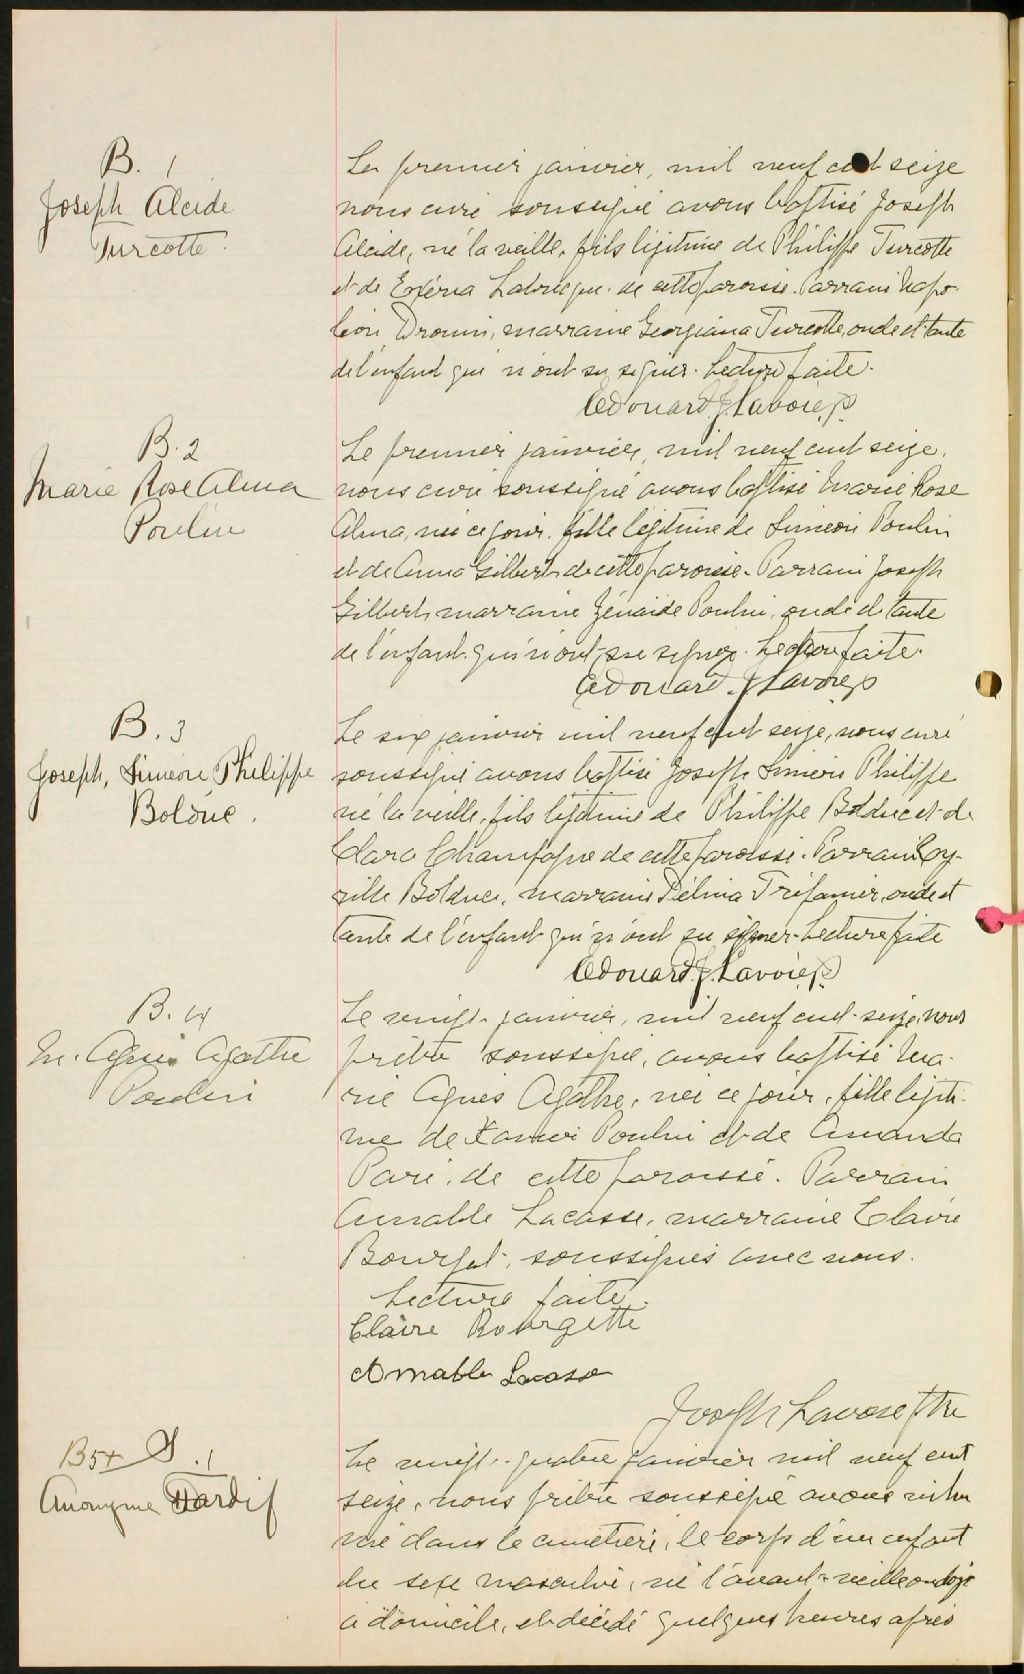 B. 1
Joseph Alcide
Turcotte.
Le premier janvier, mil neuf cent seize
nous curé soussigné avons baptisé Joseph
Alcide, né la veille, fils légitime de Philippe Turcotte
et de Exérina Labrecque de cette paroisse. Parrain Napo-
léon Drouin, marraine Georgiana Turcotte, oncle et tante
de l'enfant qui n'ont su signer. Lecture faite.
Edouard J. Lavoie, p.
B. 2
Marie Rose Alma
Poulin
Le premier janvier, mil neuf cent seize,
nous curé soussigné avons baptisé Marie Rose
Alma, née ce jour, fille légitime de Siméon Poulin
et de Anna Gilbert de cette paroisse. Parrain Joseph
Gilbert, marraine Zénaïde Poulin, oncle et tante
de l'enfant qui n'ont su signer. Lecture faite.
Edouard J. Lavoie, p
B. 3
Joseph, Siméon Philippe
Bolduc.
Le six janvier mil neuf cent seize, nous curé
soussigné avons baptisé Joseph Siméon Philippe
né la veille, fils légitime de Philippe Bolduc et de
Clara Champagne de cette paroisse. Parrain
Bolduc, marraine Délina Trépanier, oncle et
tante de l'enfant qui n'ont su signer. Lecture faite
Edouard J. Lavoie, p.
B. 4
M. Agnès Agathe
Poulin
Le vingt janvier, mil neuf cent seize, nous
prêtre soussigné, avons baptisé Ma-
rie Agnès Agathe, née ce jour, fille légiti-
me de Xavier Poulin et de Amanda
Paré, de cette paroisse. Parrain
Amable Lacasse, marraine Claire
Bourget, soussignés avec nous.
Lecture faite.
Claire Bourgette
Amable Lacasse
Joseph Lavoie Ptre
B5+ S. 1
Anonyme Tardif
Le vingt-quatre janvier mil neuf cent
seize, nous prêtre soussigné avons inhu
mé dans le cimetière, le corps d'un enfant
du sexe masculin, né l'avant-veille ondoyé
à domicile, et décédé quelques heures après